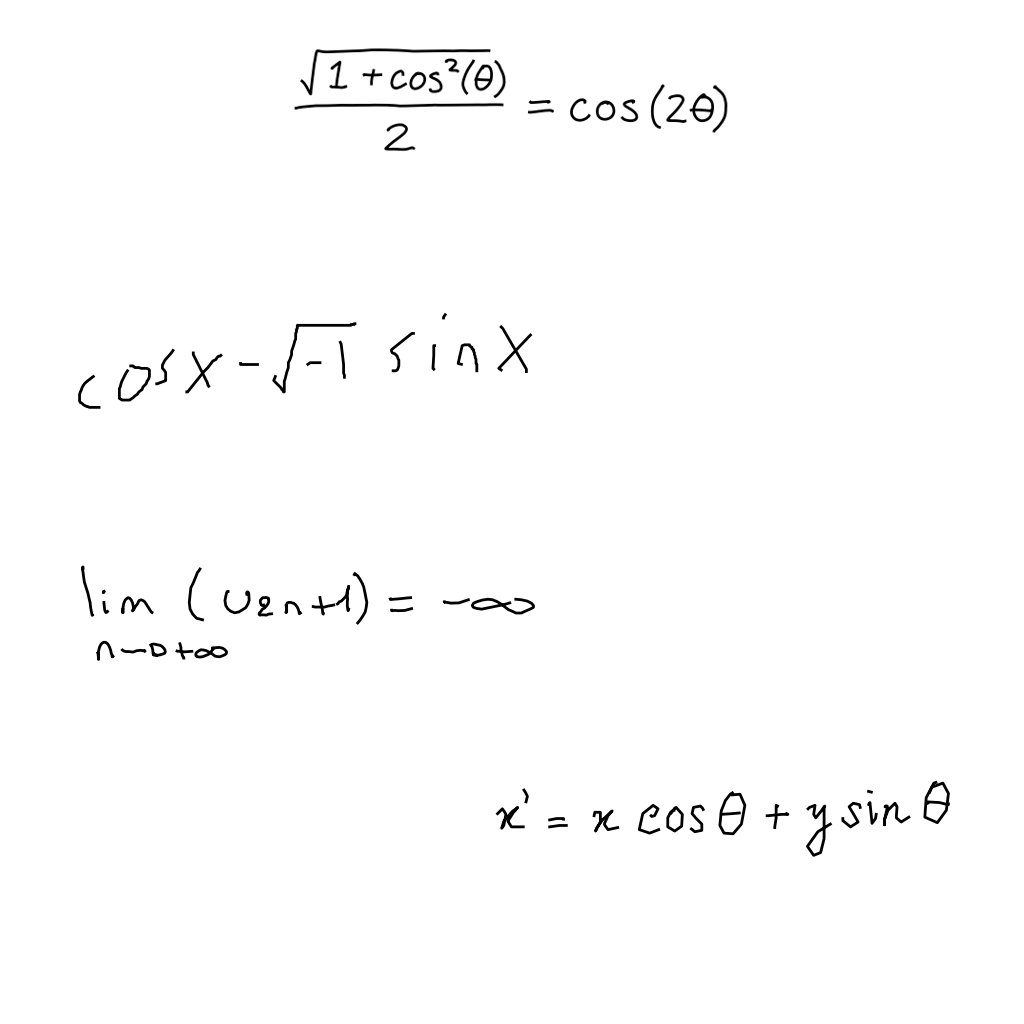 \frac{\sqrt{1+cos²(θ)}}{2} = cos(2θ)
cosx-\sqrt{-1} sinx
\lim_{n→+∞} (u_{2n+1}) = -∞
x' = x cosθ + y sinθ